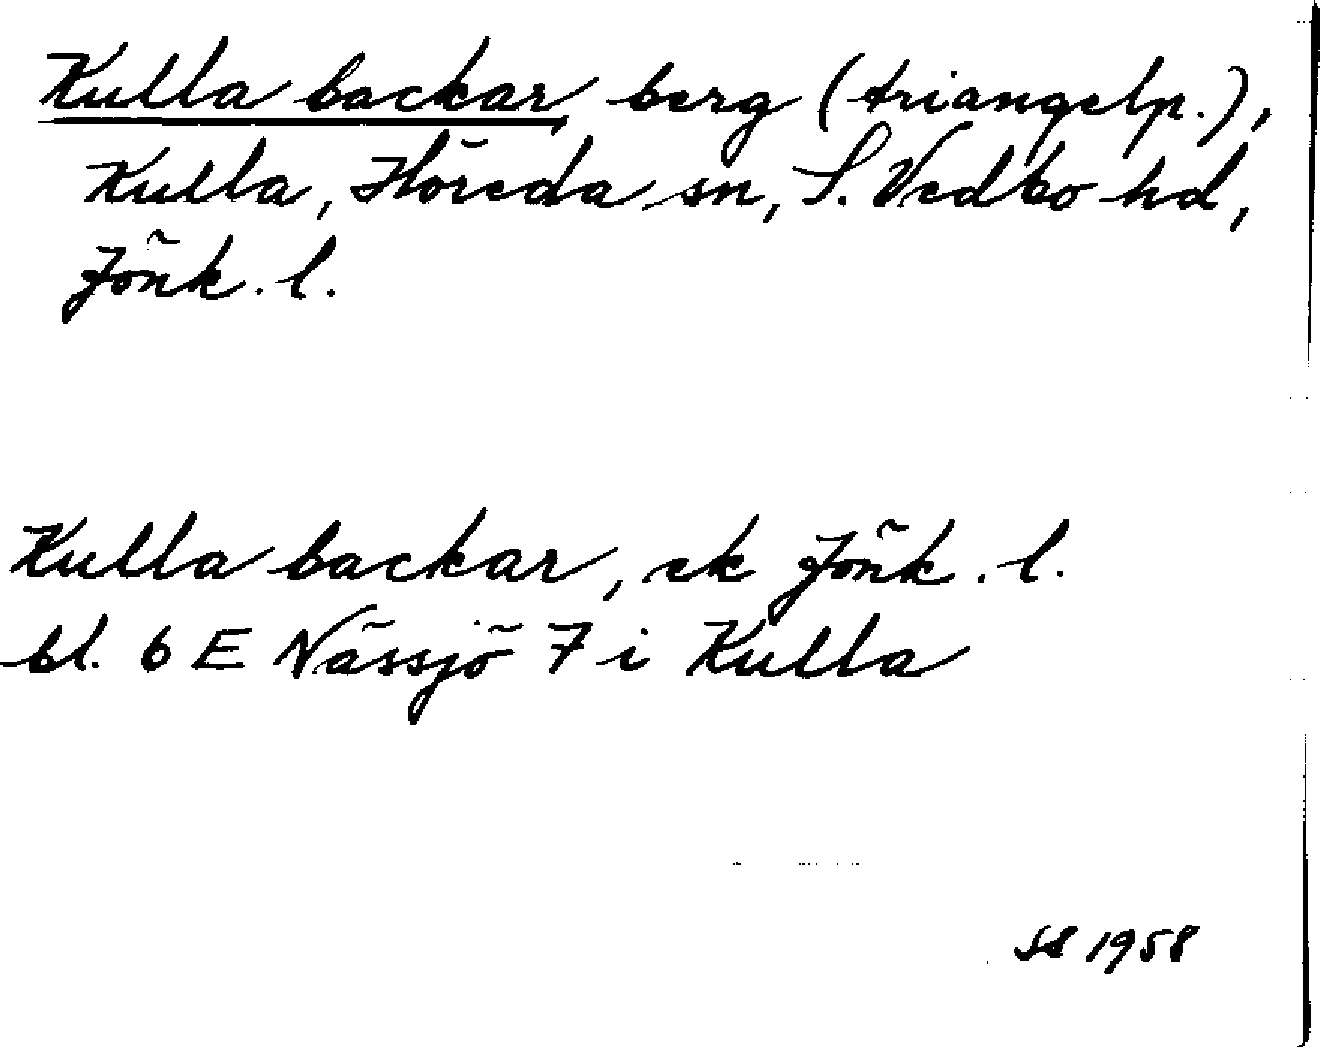 Kulla backar, berg (triangelp.),
Kulla, Höreda sn, S. Vedbo hd,
Jönk. l.
Kulla backar, ek Jönk. l.
bl. 6 E Nässjö 7 i Kulla
1958